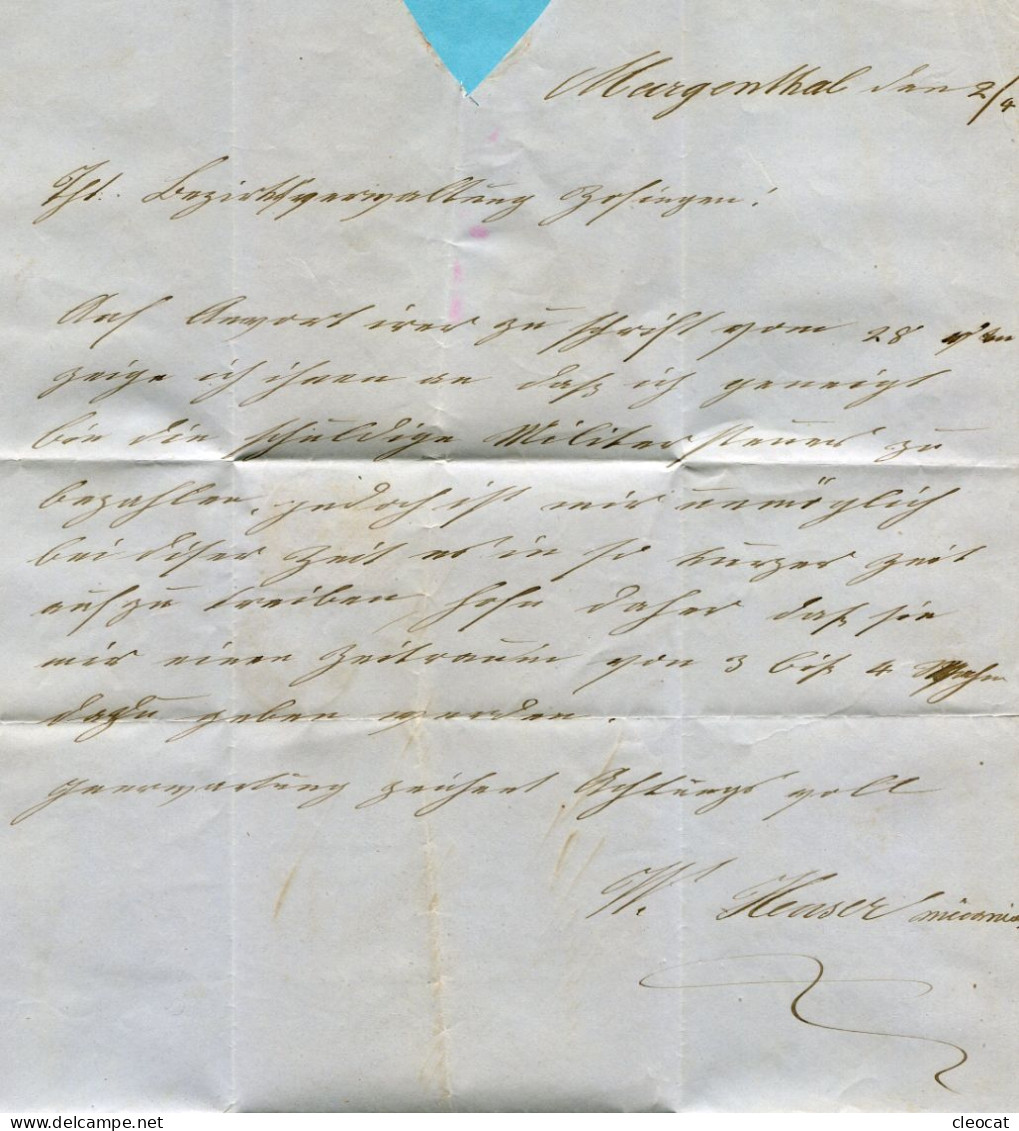 Murgenthal den 2/4
Tit. Bezirksverwaltung Zofingen!
Auf Anwort irer zu schrift vom 28
zeige ich ihnen an daß ich geneigt
bin die schuldige Militersteuer zu
bezahlen, jedoch ist mir unmöglich
bei diser Zeit es in so kurzer Zeit
aufzu treiben hofe daher daß sie
mir einen Zeitraum von 3 biß 4 Wochen
dazu geben werden.
zeichnet Achtungs voll
W. Heuser
cleocat